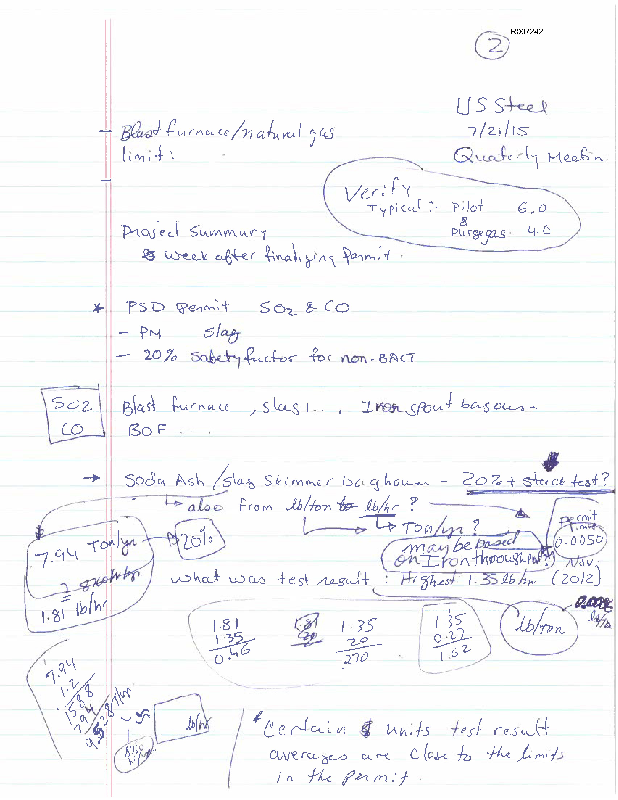 R007242
2
US Steel
7/21/15
Quaterly Meetin
- Blast furnace/natural gas
limit:
-
Verify
Typical: Pilot 6.0
&
Purge gas. 4.0
Project Summary
week after finalizing permit.
* PSD Permit SO2 & CO
- PM Slag
- 20% Safety factor for non-BACT
SO2
CO
Blast furnace, slag 1..., Iron spout
BOF ...
→ Soda Ash/Slag Skimmer baghouse - 20% + stack test?
also from lb/ton to lb/hr?
Ton/yr?
Permit
0.0050
7.94 Ton/yr → 20%
maybe based
on Iron
Nov.
1.81 lb/hr
what was test result: Highest 1.35 lb/hr (2012)
lb/ton
1.81
1.35
0.46
1.35
20
270
1.35
0.27
1.62
7.94
1.2
1588
794
lb/hr
* Certain units test result
averages are close to the limits
in the permit.